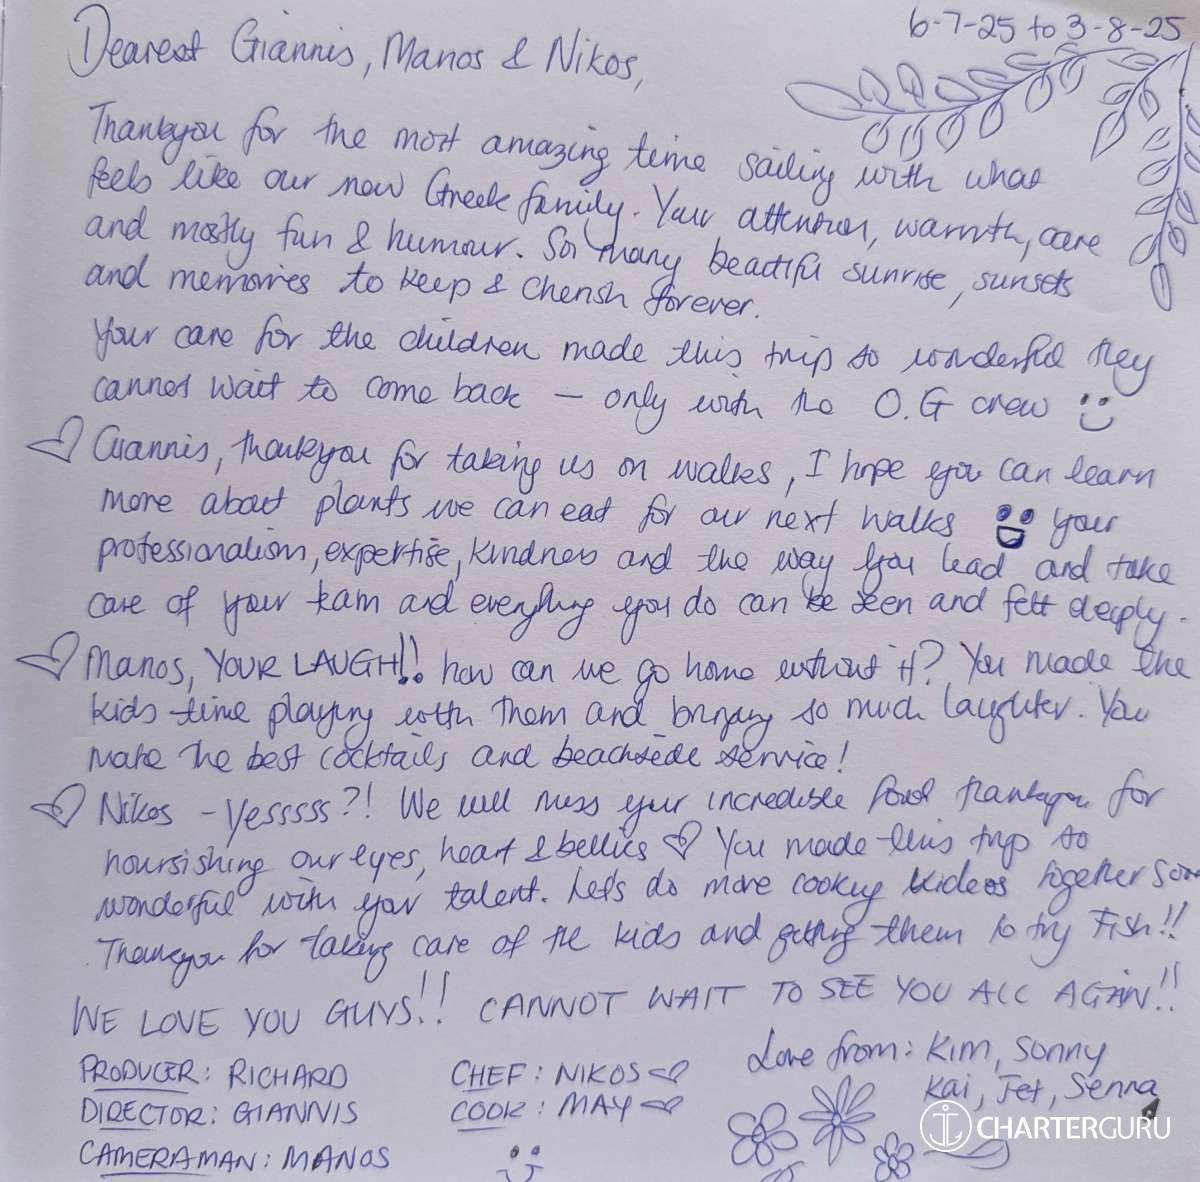 6-7-25 to 3-8-25
Dearest Giannis, Manos & Nikos,
Thankyou for the most amazing time sailing with what
feels like our new Greek family. Your attention, warmth, care
and mostly fun & humour. So many beautiful sunrise, sunsets
and memories to keep & cherish forever.
Your care for the children made this trip so wonderful they
cannot wait to come back — only with the O.G crew
Giannis, thankyou for taking us on walks, I hope you can learn
more about plants we can eat for our next walks Your
professionalism, expertise, kindness and the way you lead and take
care of your team and everything you do can be seen and felt deeply.
Manos, YOUR LAUGH!! how can we go home without it? You made the
kids time playing with them and bringing so much laughter. You
make the best cocktails and beachside service!
Nikos - Yesssss?! We will miss your incredible food thankyou for
nourishing our eyes, heart & bellies You made this trip so
wonderful with your talent. Let's do more cooking videos together soon
Thankyou for taking care of the kids and getting them to try Fish!!
WE LOVE YOU GUYS!! CANNOT WAIT TO SEE YOU ALL AGAIN!!
Love from: Kim, Sonny
Kai, Jet, Senna
PRODUCER: RICHARD
DIRECTOR: GIANNIS
CAMERAMAN: MANOS
CHEF: NIKOS
COOK: MAY
CHARTERGURU